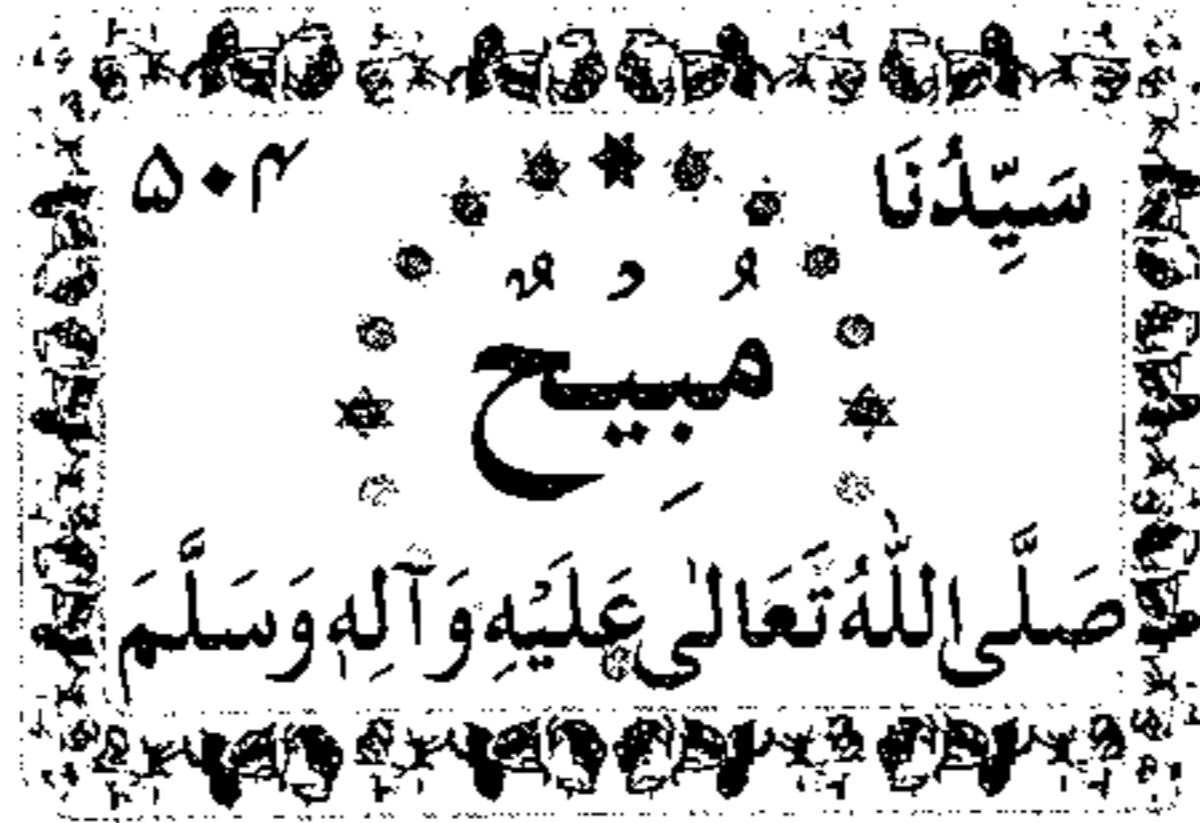 سَيِّدُنَا ۵۰۴
مُبِيْحٌ
صَلَّى اللّٰهُ تَعَالٰى عَلَيْهِ وَآلِهٖ وَسَلَّمَ